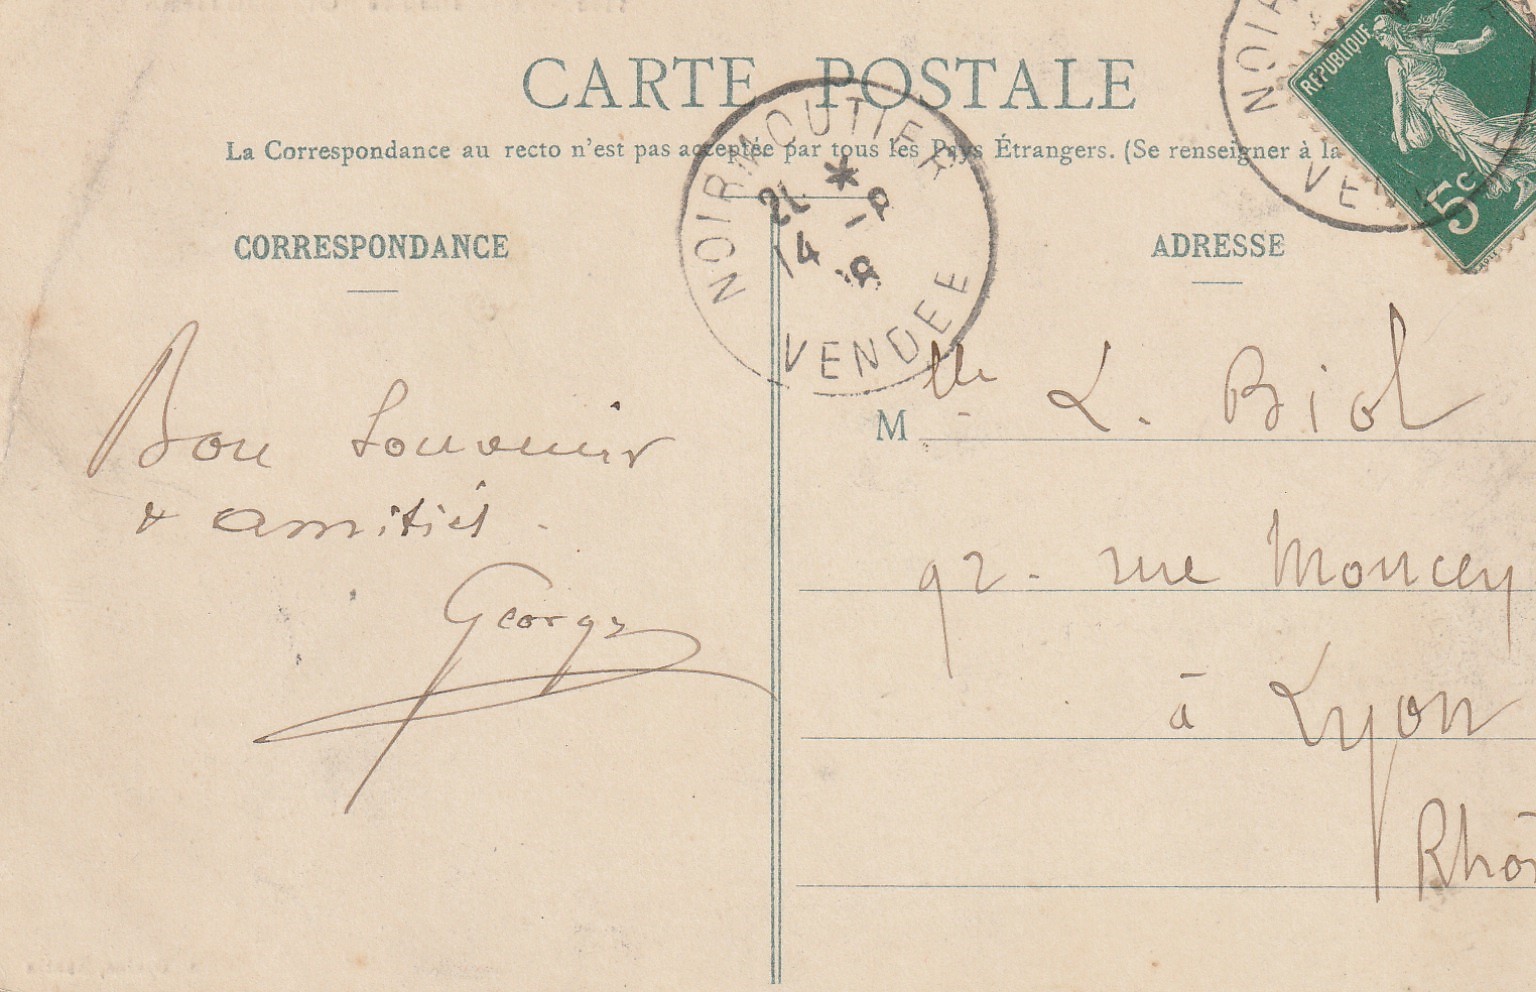 CARTE POSTALE
La Correspondance au recto n'est pas acceptée par tous les Pays Étrangers. (Se renseigner à la
CORRESPONDANCE
ADRESSE
NOIRMOUTIER
21 * -9
14
VENDEE
NOIR
VEN
REPUBLIQUE
5c
Bon Souvenir
& amitiés.
George
M lle L. Biol
92. rue Moncey
à Lyon
Rhô